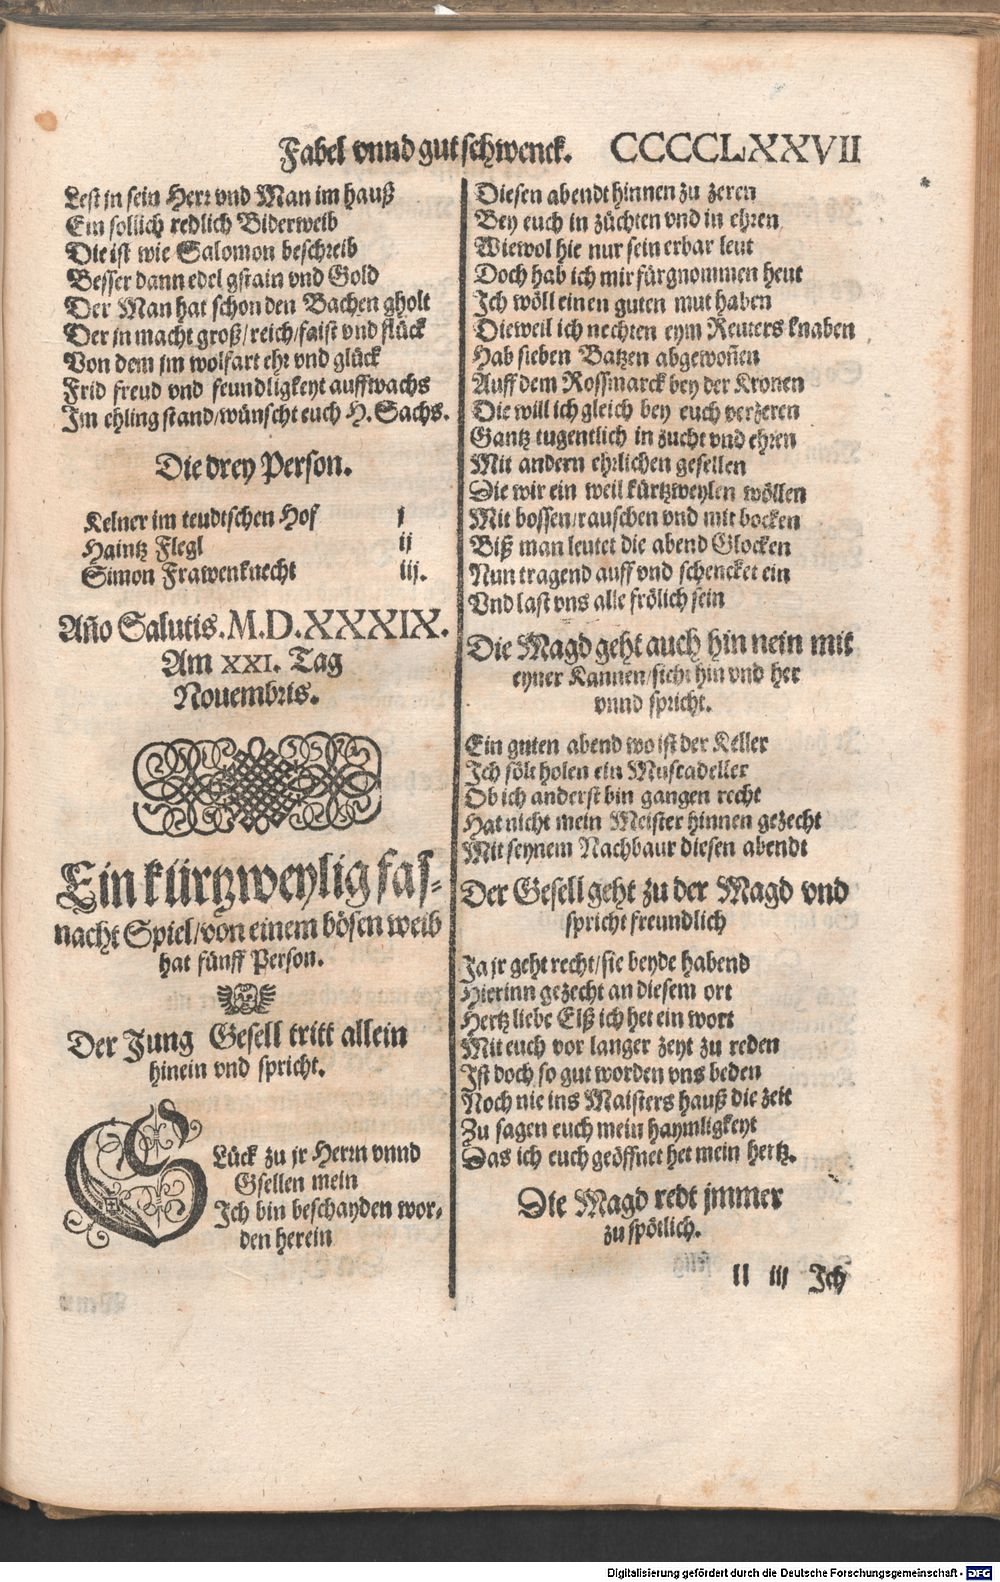 Fabel vnnd gut schwenck. CCCCCLXXVII
Lest in sein Herr vnd Man im hauß
Ein sollich redlich Biderweib
Die ist wie Salomon beschreib
Besser dann edel gstain vnd Gold
Der Man hat schon den Bachen gholt
Der in macht groß/reich/faist vnd flück
Von dem jm wolfart ehr vnd glück
Frid freud vnd feundligkeyt auffwachs
Im ehling stand/wünscht euch H. Sachs.
Die drey Person.
Kelner im teudtschen Hof j
Haintz Flegl ij
Simon Frawenknecht iij.
Año Salutis. M.D.XXXIX.
Am XXI. Tag
Nouembris.
Ein kürtzweylig fas-
nacht Spiel/von einem bösen weib
hat fünff Person.
Der Jung Gesell tritt allein
hinein vnd spricht.
GLück zu jr Herrn vnnd
Gsellen mein
Ich bin beschayden wor-
den herein
Diesen abendt hinnen zu zeren
Bey euch in züchten vnd in ehren
Wiewol hie nur sein erbar leut
Doch hab ich mir fürgnommen heut
Ich wöll einen guten mut haben
Dieweil ich nechten eym Reuters knaben
Hab sieben Batzen abgewoñen
Auff dem Rossmarck bey der Kronen
Die will ich gleich bey euch verzeren
Gantz tugentlich in zucht vnd ehren
Mit andern ehrlichen gesellen
Die wir ein weil kürtzweylen wöllen
Mit bossen/rauschen vnd mit bocken
Biß man leutet die abend Glocken
Nun tragend auff vnd schencket ein
Vnd last vns alle frölich sein
Die Magd geht auch hin nein mit
eyner Kannen/sicht hin vnd her
vnnd spricht.
Ein guten abend wo ist der Keller
Ich sölt holen ein Muscadeller
Ob ich anderst bin gangen recht
Hat nicht mein Meister hinnen gezecht
Mit seynem Nachbaur diesen abendt
Der Gesell geht zu der Magd vnd
spricht freundlich
Ja jr geht recht/sie beyde habend
Hierinn gezecht an diesem ort
Hertz liebe Elß ich het ein wort
Mit euch vor langer zeyt zu reden
Ist doch so gut worden vns beden
Noch nie ins Maisters hauß die zeit
Zu sagen euch mein haymligkeyt
Das ich euch geöffnet het mein hertz.
Die Magd redt jmmer
zu spötlich.
ll iij Ich
Digitalisierung gefördert durch die Deutsche Forschungsgemeinschaft - DFG